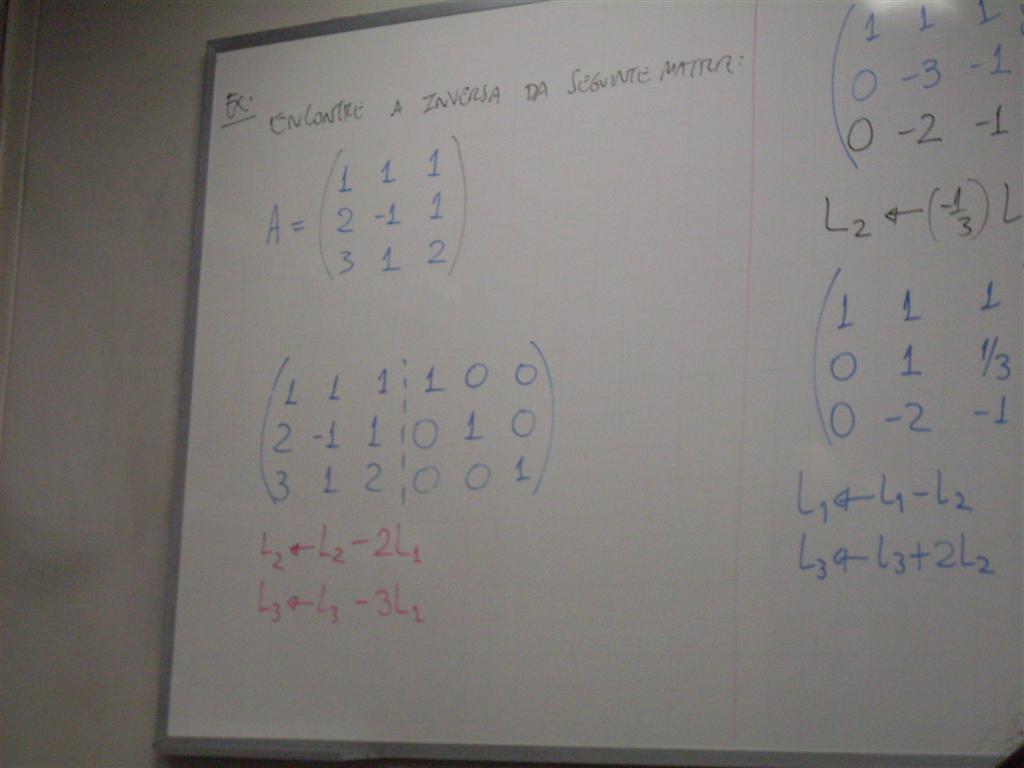 EX: ENCONTRE A INVERSA DA SEGUINTE MATRIZ:
1 1 1
A = 2 -1 1
3 1 2
1 1 1 1 0 0
2 -1 1 0 1 0
3 1 2 0 0 1
L2 ← L2 - 2L1
L3 ← L3 - 3L1
1 1 1
0 -3 -1
0 -2 -1
L2 ← (-1/3) L
1 1 1
0 1 1/3
0 -2 -1
L1 ← L1 - L2
L3 ← L3 + 2L2